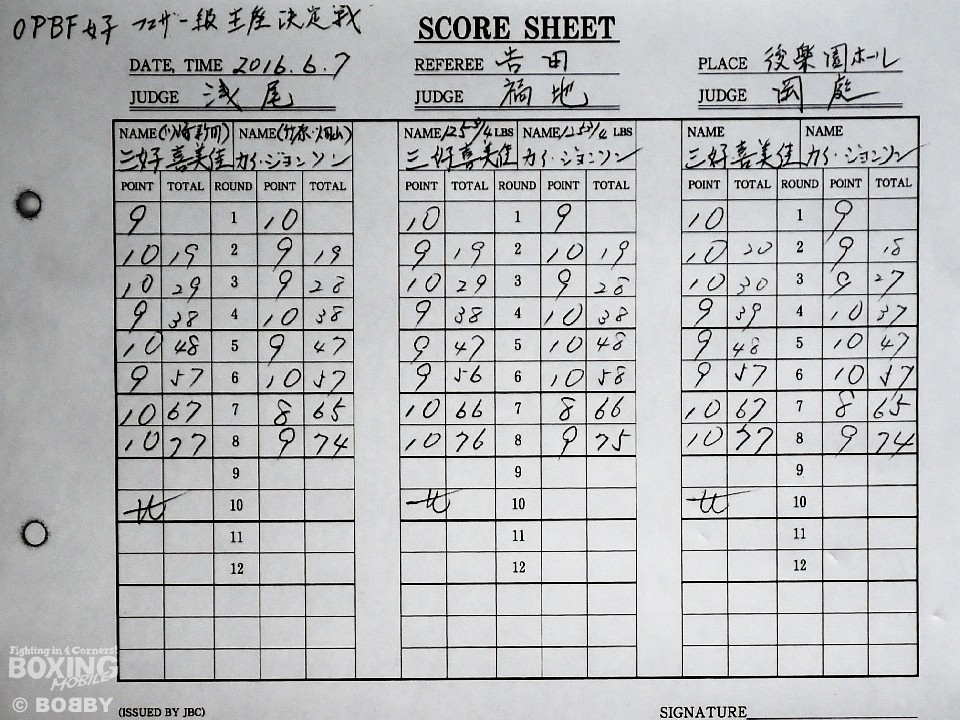 OPBF女子 フェザー級王座決定戦
SCORE SHEET
DATE, TIME 2016.6.7 REFEREE 吉田 PLACE 後樂園ホール
JUDGE 浅尾 JUDGE 福地 JUDGE 岡庭
NAME NAME NAME 125 3/4 LBS NAME 125 3/4 LBS NAME NAME
三好喜美佳 カイ・ジョンソン 三好喜美佳 カイ・ジョンソン 三好喜美佳 カイ・ジョンソン
POINT TOTAL ROUND POINT TOTAL POINT TOTAL ROUND POINT TOTAL POINT TOTAL ROUND POINT TOTAL
9 1 10 10 1 9 10 1 9
10 19 2 9 19 9 19 2 10 19 10 20 2 9 18
10 29 3 9 28 10 29 3 9 28 10 30 3 9 27
9 38 4 10 38 9 38 4 10 38 9 39 4 10 37
10 48 5 9 47 9 47 5 10 48 9 48 5 10 47
9 57 6 10 57 9 56 6 10 58 9 57 6 10 57
10 67 7 8 65 10 66 7 8 66 10 67 7 8 65
10 77 8 9 74 10 76 8 9 75 10 77 8 9 74
9 9 9
10 10 10
11 11 11
12 12 12
Fighting in 4 Corners!
BOXING
MOBILE
© BOBBY
(ISSUED BY JBC) SIGNATURE